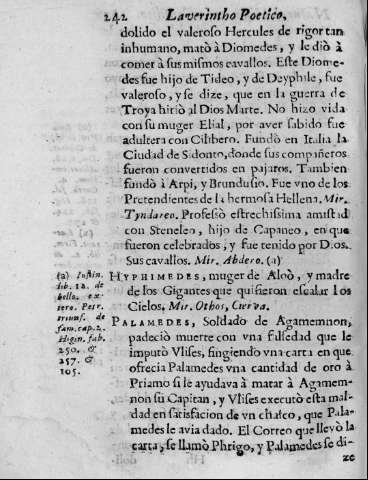 242 Laverintho Poetico,
dolido el valeroso Hercules de rigor tan
inhumano, matò à Diomedes, y le diò à
comer à sus mismos cavallos. Este Diome-
des fue hijo de Tideo, y de Deyphile, fue
valeroso, y se dize, que en la guerra de
Troya hiriò al Dios Marte. No hizo vida
con su muger Elial, por aver sabido fue
adultera con Cilibero. Fundò en Italia la
Ciudad de Sidonto, donde sus compañeros
fueron convertidos en pajaros. Tambien
fundò à Arpi, y Brundusio. Fue vno de los
Pretendientes de la hermosa Hellena. Mir.
Tyndareo. Professò estrechissima amistad
con Steneleo, hijo de Capaneo, en que
fueron celebrados, y fue tenido por Dios.
Sus cavallos. Mir. Abdero. (a)
HYPHIMEDES, muger de Aloò, y madre
de los Gigantes que quisieron escalar los
Cielos. Mir. Othos, Cueva.
PALAMEDES, Soldado de Agamemnon,
padeciò muerte con vna falsedad que le
imputò Vlises, fingiendo vna carta en que
ofrecia Palamedes vna cantidad de oro à
Priamo si le ayudava à matar à Agamem-
non su Capitan, y Vlises executò esta mal-
dad en satisfacion de vn chasco, que Pala-
medes le avia dado. El Correo que llevò la
carta, se llamò Phrigo, y Palamedes se di-
ze
(a) Iustin.
lib. 12. de
bello. ex-
tero. Petr.
triumf. de
fam. cap. 2.
Higin. fab.
250. &
257. &
105.